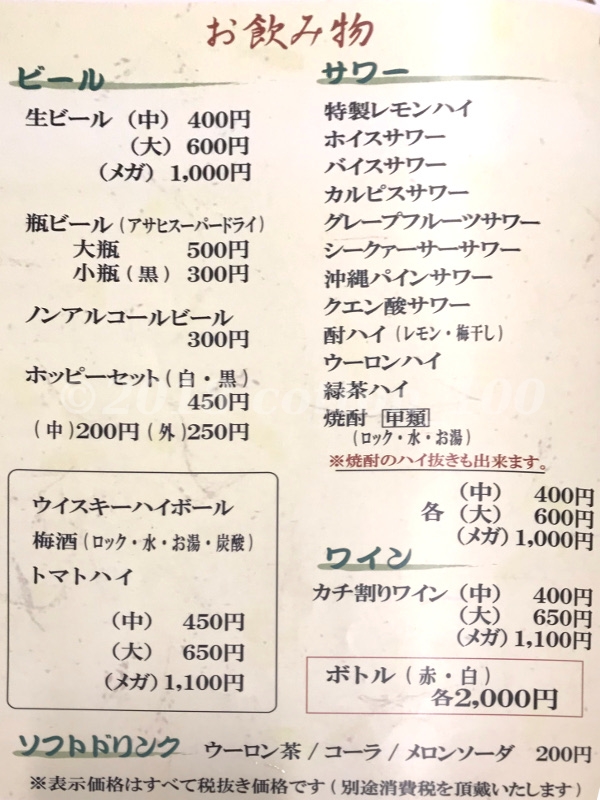 お飲み物
ビール
生ビール（中）400円
（大）600円
（メガ）1,000円
瓶ビール（アサヒスーパードライ）
大瓶 500円
小瓶（黒）300円
ノンアルコールビール
300円
ホッピーセット（白・黒）
450円
（中）200円（外）250円
ウイスキーハイボール
梅酒（ロック・水・お湯・炭酸）
トマトハイ
（中）450円
（大）650円
（メガ）1,100円
サワー
特製レモンハイ
ホイスサワー
バイスサワー
カルピスサワー
グレープフルーツサワー
シークァーサーサワー
沖縄パインサワー
クエン酸サワー
酎ハイ（レモン・梅干し）
ウーロンハイ
緑茶ハイ
焼酎 甲類
（ロック・水・お湯）
※焼酎のハイ抜きも出来ます。
各（中）400円
（大）600円
（メガ）1,000円
ワイン
カチ割りワイン（中）400円
（大）650円
（メガ）1,100円
ボトル（赤・白）
各2,000円
ソフトドリンク ウーロン茶 / コーラ / メロンソーダ 200円
※表示価格はすべて税抜き価格です（別途消費税を頂戴いたします）